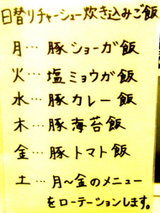 日替りチャーシュー炊き込みご飯
月…豚ショーガ飯
火…塩ミョウガ飯
水…豚カレー飯
木…豚海苔飯
金…豚トマト飯
土…月〜金のメニュー
をローテーションします。